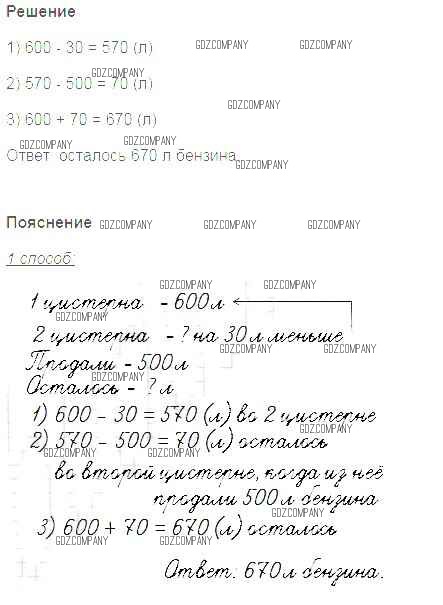 Решение
1) 600 - 30 = 570 (л) GDZCOMPANY GDZCOMPANY
GDZCOMPANY
2) 570 - 500 = 70 (л)
GDZCOMPANY
3) 600 + 70 = 670 (л)
GDZCOMPANY GDZCOMPANY
Ответ: осталось 670 л бензина.
GDZCOMPANY
Пояснение GDZCOMPANY GDZCOMPANY GDZCOMPANY
1 способ:
GDZCOMPANY GDZCOMPANY
1 цистерна - 600 л
GDZCOMPANY
2 цистерна - ? на 30 л меньше
GDZCOMPANY GDZCOMPANY
Продали - 500 л
GDZCOMPANY
Осталось - ? л
1) 600 - 30 = 570 (л) во 2 цистерне
GDZCOMPANY
2) 570 - 500 = 70 (л) осталось
GDZCOMPANY GDZCOMPANY
во второй цистерне, когда из неё
продали 500 л бензина
GDZCOMPANY
3) 600 + 70 = 670 (л) осталось
GDZCOMPANY GDZCOMPANY
Ответ: 670 л бензина.